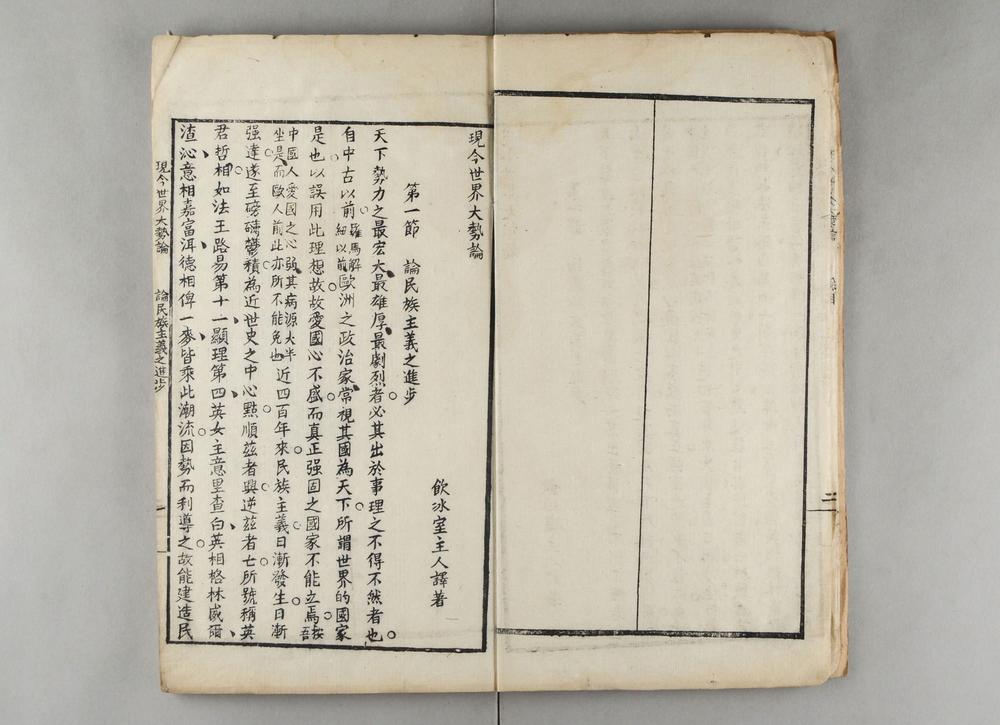 現今世界大勢論
飲冰室主人譯著
第一節　論民族主義之進步
天下勢力之最宏大、最雄厚、最劇烈者、必其出於事理之不得不然者也。
自中古以前羅馬解紐以前歐洲之政治家、常視其國為天下、所謂世界的國家
是也。以誤用此理想故、故愛國心不盛、而真正强固之國家不能立焉。按吾
中國人愛國之心弱其病源大半坐是而歐人前此亦所不能免也近四百年來、民族主義日漸發生、日漸
强達、遂至磅礴鬱積為近世史之中心點。順茲者興、逆茲者亡。所號稱英
君哲相如法王路易第十一、顯理第四、英女主意里查白、英相格林威爾、
渣沁、意相嘉富洱、德相俾士麥、皆乘此潮流、因勢而利導之。故能建造民
現今世界大勢論　論民族主義之進步　一
二